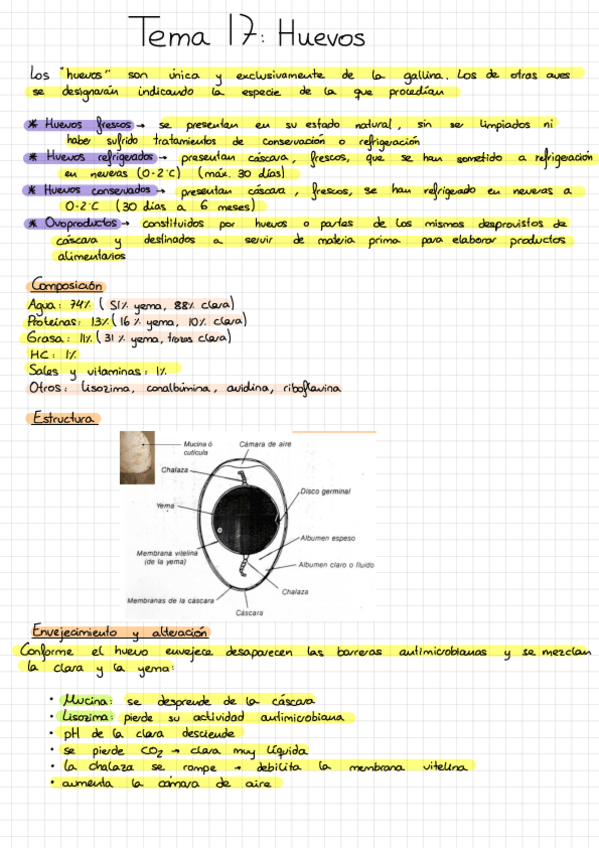 Tema 17: Huevos
Los "huevos" son única y exclusivamente de la gallina. Los de otras aves
se designarán indicando la especie de la que procedían
* Huevos frescos → se presentan en su estado natural, sin ser limpiados ni
haber sufrido tratamientos de conservación o refrigeración
* Huevos refrigerados → presentan cáscara, frescos, que se han sometido a refrigeración
en neveras (0-2ºC) (máx. 30 días)
* Huevos conservados → presentan cáscara, frescos, se han refrigerado en neveras a
0-2ºC (30 días a 6 meses)
* Ovoproductos → constituidos por huevos o partes de los mismos desprovistos de
cáscara y destinados a servir de materia prima para elaborar productos
alimentarios
Composición
Agua: 74% (51% yema, 88% clara)
Proteínas: 13% (16% yema, 10% clara)
Grasa: 11% (31% yema, trazas clara)
HC: 1%
Sales y vitaminas: 1%
Otros: lisozima, conalbúmina, avidina, riboflavina
Estructura
Mucina ó
cutícula
Cámara de aire
Chalaza
Disco germinal
Yema
Albumen espeso
Membrana vitelina
(de la yema)
Albumen claro o fluido
Chalaza
Membranas de la cáscara
Cáscara
Envejecimiento y alteración
Conforme el huevo envejece desaparecen las barreras antimicrobianas y se mezclan
la clara y la yema:
• Mucina: se desprende de la cáscara
• Lisozima: pierde su actividad antimicrobiana
• pH de la clara desciende
• se pierde CO2 → clara muy líquida
• la chalaza se rompe → debilita la membrana vitelina
• aumenta la cámara de aire